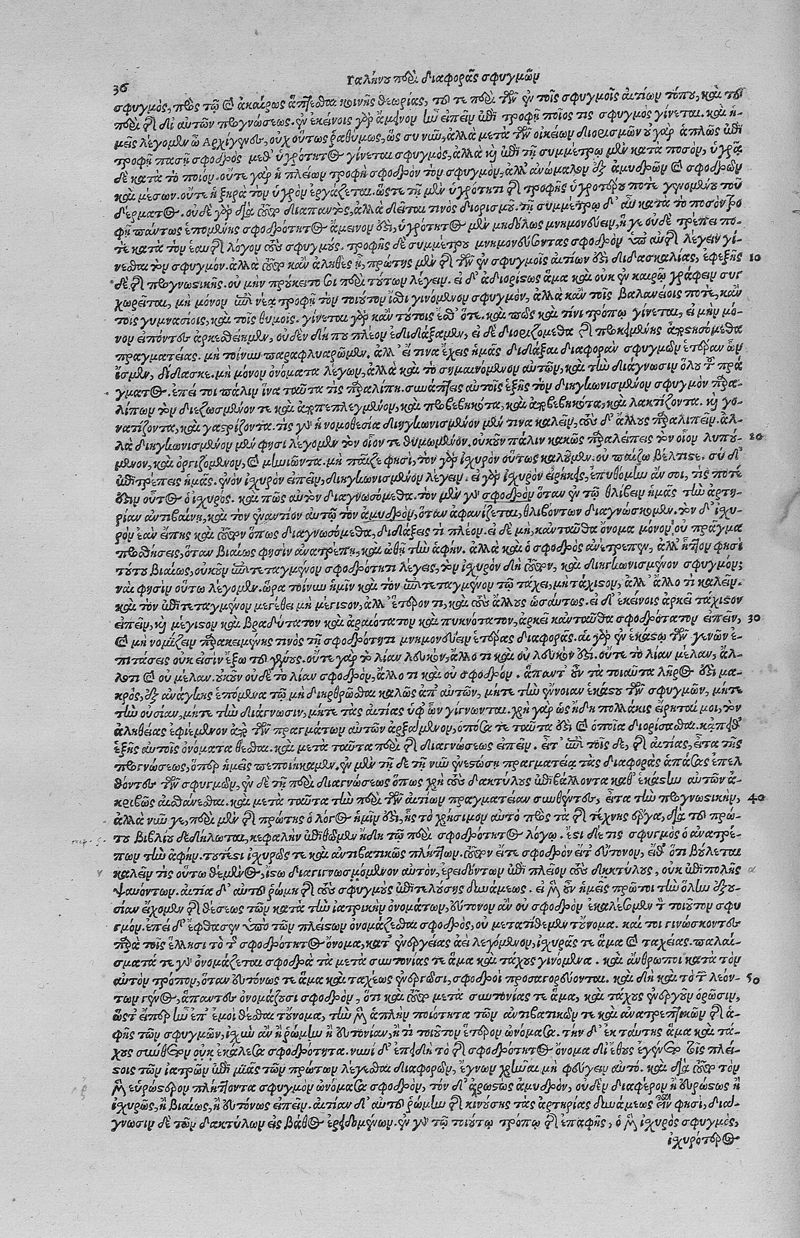 36 Γαλήνου περὶ διαφορᾶς σφυγμῶν
σφυγμὸς, πρὸς τῷ καὶ ἀκαίρως ἅπτεσθαι κοινῆς θεωρίας, τοῦ τε περὶ τῶν ἐν τοῖς σφυγμοῖς αἰτίων τόπου, καὶ τοῦ
περὶ τῆς δι αὐτῶν προγνώσεως. ἐν ἐκείνοις γὰρ ἄμεινον ἦν εἰπεῖν ἐπὶ τροφῇ ποῖός τις σφυγμὸς γίνεται. καὶ ἡ
μεῖς λέγομεν ὦ Αρχίγενες, οὐχ οὕτως ῥαθύμως, ὡς συ νῦν, ἀλλὰ μετὰ τῶν οἰκείων διορισμῶν οὐ γὰρ ἁπλῶς ἐπὶ
τροφῇ πάσῃ σφοδρὸς μεθ' ὑγρότητος γίνεται σφυγμὸς, ἀλλὰ κἢ ἐπὶ τῇ συμμέτρῳ μὲν κατὰ ποσὸν, ὑγρᾷ
δὲ κατὰ τὸ ποιόν. οὔτε γὰρ ἡ πλείων τροφὴ σφοδρὸν τὸν σφυγμὸν, ἀλλ' ἀνώμαλον ἐξ ἀμυδρῶν καὶ σφοδρῶν
καὶ μέσων. οὔτε ἡ ξηρὰ τὸν ὑγρὸν ἐργάζεται. ὥστε τῇ μὲν ὑγρότητι τῆς τροφῆς ὑγροτέρου ποτὲ γινομένου τοῦ
δέρματος. οὐδὲ γὰρ διὰ τοῦτο διαπαντὸς, ἀλλὰ δεῖται τινὸς διορισμοῦ. τῇ συμμέτρῳ δ' αὖ κατὰ τὸ ποσὸν τρο
φῇ πάντως ἑπομένης σφοδρότητος ἄμεινον ἐστι, ὑγρότητος μὲν μηδόλως μνημονεύειν, ἥ γε οὐδὲ τρέπει πο-
τὲ κατὰ τὸν ἑαυτῆς λόγον τοὺς σφυγμούς. τροφῆς δὲ συμμέτρου μνημονεύσαντας σφοδρὸν ὑπὸ αὐτῆς λέγειν γί
νεσθαι τὸν σφυγμόν. ἀλλὰ τοῦτο κἂν ἀληθὲς ᾖ, πρώτης μὲν τῆς τῶν ἐν σφυγμοῖς αἰτίων ἐστὶ διδασκαλίας, ἐφεξῆς 10
δὲ τῆς προγνωστικῆς. οὐ μὴν πρόκειταί σοι περὶ τούτων λέγειν. εἰ δ' ἀδιορίστως ἅμα καὶ οὐκ ἐν καιρῷ γράφειν συγ
χωρεῖται, μὴ μόνον ἐπὶ νέᾳ τροφῇ τὸν τοιοῦτον ἴσθι γινόμενον σφυγμὸν, ἀλλὰ κἀν τοῖς βαλανείοις ποτὲ, κἀν
τοῖς γυμνασίοις, καὶ τοῖς θυμοῖς. γίνεται γὰρ κἀν τούτοις ἔσθ' ὅτε. καὶ πῶς καὶ τίνι τρόπῳ γίνεται, εἰ μὴ μό-
νον εἰπόντες ἀρκεσθείημεν, οὐδὲν δήπου πλέον ἐδιδάξαμεν, εἰ δὲ διοριζόμεθα τῆς προκειμένης ἀφεξόμεθα
πραγματείας. μὴ τοίνυν παραφλυαρῶμεν. ἀλλ' εἴ τινα ἔχεις ἡμᾶς διδάξαι διαφορὰν σφυγμῶν ἑτέραν ὧν
ἴσμεν, δίδασκε. μὴ μόνον ὀνόματα λέγων, ἀλλὰ καὶ τὸ σημαινόμενον αὐτῶν, καὶ τὴν διάγνωσιν ὅλου τοῦ πρά
γματος. ἐπεί τοι πάλιν ἵνα ταῦτα τὶς παραλίπῃ. συνάπτεις αὐτοῖς ἑξῆς τὸν διηγκωνισμένον σφυγμὸν παρα-
λίπων τὸν διεζωσμένον τε καὶ ἀποπεπλεγμένον, καὶ προβεβηκότα, καὶ ἀποβεβηκότα, καὶ λακτίζοντα. κἢ γο-
νατίζοντα, καὶ γαστρίζοντα. τίς γὰρ ἡ νομοθεσία διηγκωνισμένον μέν τινα καλεῖν, τοὺς δ' ἄλλους παραλιπεῖν. ἀλ-
λὰ διηγκωνισμένον μέν φησι λέγομεν τὸν οἷον τεθυμωμένον. οὐκοῦν πάλιν κακῶς παραλείπεις τὸν οἷον λυπού- 20
μενον, καὶ ὀργιζόμενον, καὶ μηνιῶντα. μὴ παῖζε φησὶ, τὸν γὰρ ἰσχυρὸν οὕτως καλοῦμεν. οὐ παίζω βέλτιστε. σὺ δ'
ἐπιτρέπεις ἡμᾶς. ἐνὸν ἰσχυρὸν εἰπεῖν, διηγκωνισμένον λέγειν. εἰ γὰρ ἰσχυρὸν εἰρήκεις, ἐπυθόμην ἄν σοι, τίς ποτέ
ἐστιν οὗτος ὁ ἰσχυρός. καὶ πῶς αὐτὸν διαγνωσόμεθα. τὸν μὲν γὰρ σφοδρὸν ὅταν ἐν τῷ θλίβειν ἡμᾶς τὴν ἀρτη-
ρίαν ἀντιβαίνῃ, καὶ τὸν ἐναντίον αὐτῷ τὸν ἀμυδρὸν, ὅταν ἀφανίζεται, θλιβόντων διαγνώσκομεν. τὸν δ' ἰσχυ-
ρὸν ἐὰν εἴπῃς καὶ τοῦτον ὅπως διαγνωσόμεθα, διδάξεις τὶ πλέον. εἰ δὲ μὴ, κἀνταῦθα ὄνομα μόνον, οὐ πρᾶγμα
προσθήσεις, ὅταν βιαίως φησὶν ἀνατρέπῃ, καὶ ὠθῇ τὴν ἁφήν. ἀλλὰ καὶ ὁ σφοδρὸς ἀνέτρεπεν, ἀλλ' ἧττον φησὶ
τούτου βιαίως, οὐκοῦν ἐπιτεταγμένον σφοδρότητι λέγεις, τὸν ἰσχυρὸν δὴ τοῦτον, καὶ διηγκωνισμένον σφυγμόν;
ναὶ φησὶν οὕτω λέγομεν. ὥρα τοίνυν ἡμῖν καὶ τὸν ἐπιτεταγμένον τῷ τάχει, μὴ τάχιστον, ἀλλ' ἄλλο τὶ καλεῖν.
καὶ τὸν ἐπιτεταγμένον μεγέθει μὴ μέγιστον, ἀλλ' ἕτερον τι, καὶ τοὺς ἄλλους ὡσαύτως. εἰ δ' ἐκείνοις ἀρκεῖ τάχιστον
εἰπεῖν, κἢ μέγιστον καὶ βραδύτατον καὶ ἀραιότατον καὶ πυκνότατον, ἀρκεῖ κἀνταῦθα σφοδρότατον εἰπεῖν, 30
καὶ μὴ νομίζειν παρακειμένης τινὸς τῇ σφοδρότητι μνημονεύειν ἑτέρας διαφορᾶς. αἱ γὰρ ἐν ἑκάστῳ τῶν γενῶν ἐ-
πιτάσεις οὐκ εἰσὶν ἔξω τοῦ γένους. οὔτε γὰρ τὸ λίαν λευκὸν, ἄλλο τι καὶ οὐ λευκὸν ἐστι. οὔτε τὸ λίαν μέλαν, ἄλ-
λο τι καὶ οὐ μέλαν. οὐκοῦν οὐδὲ τὸ λίαν σφοδρὸν, ἄλλο τι καὶ οὐ σφοδρόν. ἅπαντ' οὖν τὰ τοιαῦτα λῆρος ἐστι μα-
κρὸς, ἐξ ἀνάγκης ἑπόμενα τῷ μὴ διηρθρῶσθαι καλῶς ἀπ' αὐτῶν, μήτε τὴν ἔννοιαν ἑκάστου τῶν σφυγμῶν, μήτε
τὴν οὐσίαν, μήτε τὴν διάγνωσιν, μήτε τὰς αἰτίας ὑφ' ὧν γίγνονται. χρὴ γὰρ ὡς ἤδη πολλάκις εἴρηταί μοι, τὸν
ἀληθείας ἐφιέμενον ἀπὸ τῶν πραγμάτων αὐτῶν ἀρξάμενον, ὁπόσα τε ταῦτα ἐστὶ καὶ ὁποῖα διορίσασθαι. κἄπειθ'
ἑξῆς αὐτοῖς ὀνόματα θέσθαι. καὶ μετὰ ταῦτα περὶ τῆς διαγνώσεως εἰπεῖν. εἶτ' ἐπὶ τοῖσδε, τῆς αἰτίας, εἶτα τῆς
προγνώσεως, ὅπερ ἡμεῖς πεποιήκαμεν. ἐν μὲν τῇδε τῇ νῦν ἐνεστώσῃ πραγματείᾳ τὰς διαφορὰς ἁπάσας ἐπελ
θόντες τῶν σφυγμῶν, ἐν δὲ τῇ περὶ διαγνώσεως ὅπως χρὴ τοὺς δακτύλους ἐπιβάλλοντα καθ' ἑκάστην αὐτῶν ἀ-
κριβῶς αἰσθάνεσθαι. καὶ μετὰ ταῦτα τὴν περὶ τῶν αἰτίων πραγματείαν συνθέντες, εἶτα τὴν προγνωστικὴν, 40
ἀλλὰ νῦν γε, περὶ μὲν τῆς πρώτης ὁ λόγος ἡμῖν ἐστι, ἧς τὸ χρήσιμον αὐτὸ πρὸς τὰ τῆς τέχνης ἔργα, διὰ τοῦ πρώ-
του βιβλίου δεδήλωται, κεφαλὴν ἐπιθῶμεν ἤδη τῷ περὶ σφοδρότητος λόγῳ. ἔστι δέ τις σφυγμὸς ὁ ἀνατρέ-
πων τὴν ἁφήν. τουτέστι ἰσχυρῶς τε καὶ ἀντιβατικῶς πλήττων. τοῦτον εἴτε σφοδρὸν εἴτ' εὔτονον, εἴθ' ὅτι βούλεται
καλεῖν τὶς οὕτω θέμενος, ἴσω διαγνωσόμενον αὐτὸν, ἐρειδόντων ἐπὶ πλέον τοὺς δακτύλους, οὐκ ἐπιπολῆς
ψαυόντων. αἰτία δ' αὐτοῦ ῥώμη τῆς τοὺς σφυγμοὺς ἐπιτελούσης δυνάμεως. εἰ μὲν οὖν ἡμεῖς πρῶτοι τὴν ὅλην ἐξου-
σίαν εἴχομεν τῆς θέσεως τῶν κατὰ τὴν ἰατρικὴν ὀνομάτων, εὔτονον ἂν οὐ σφοδρὸν ἐκαλέσαμεν τὸν τοιοῦτον σφυ
γμόν. ἐπεὶ δ' ἔφθασεν ὑπὸ τῶν πλείστων ὀνομάζεσθαι σφοδρὸς, οὐ μετατίθεμεν τοὔνομα. καί τοι γινώσκοντες
παρὰ τοῖς ἕλλησι τὸ τῆς σφοδρότητος ὄνομα, κατ' ἐνεργείας ἀεὶ λεγόμενον, ἰσχυρᾶς τε ἅμα καὶ ταχείας. παλαί-
σματά τε γὰρ ὀνομάζεται σφοδρὰ τὰ μετὰ συντονίας τε ἅμα καὶ τάχους γινόμενα. καὶ ἄνθρωποι κατὰ τὸν
αὐτὸν τρόπον, ὅταν εὐτόνως τε ἅμα καὶ ταχέως ἐνεργῶσι, σφοδροὶ προσαγορεύονται. καὶ δὴ καὶ τὸ τῶν λεόν- 50
των γένος, ἅπαντες ὀνομάζουσι σφοδρὸν, ὅτι καὶ τοῦτο μετὰ συντονίας τε ἅμα, καὶ τάχους ἐνεργοῦν ὁρῶσιν,
ὥστ' εἴπερ ἦν ἐπ' ἐμοὶ θέσθαι τοὔνομα, τὴν μὲν ἁπλῆν ποιότητα τῶν ἀντιβατικῶν τε καὶ ἀνατρεπτικῶν τῆς ἁ-
φῆς τῶν σφυγμῶν, ἰσχὺν ἂν ἢ ῥώμην ἢ εὐτονίαν, ἤ τι τοιοῦτον ἕτερον ὠνόμαζα. τὴν δ' ἐκ ταύτης ἅμα καὶ τά-
χους σύνθετον οὐκ ἐκάλεσα σφοδρότητα. νυνὶ δ' ἐπειδὴ τὸ τῆς σφοδρότητος ὄνομα δι ἔθους ἐγένετο τοῖς πλεί-
στοις τῶν ἰατρῶν ἐπὶ μιᾶς τῶν πρώτων λέγεσθαι διαφορῶν, ἔγνων χρῆναι μὴ φεύγειν αὐτό. καὶ διὰ τοῦτο τὸν
μὲν εὐρώστερον πλήττοντα σφυγμὸν ὠνόμασα σφοδρὸν, τὸν δ' ἀρώστως ἀμυδρὸν, οὐδὲν διαφέρον ἢ εὐρώστως ἢ
ἰσχυρῶς, ἢ βιαίως, ἢ εὐτόνως εἰπεῖν. αἰτίαν δ' αὐτοῦ ῥώμην τῆς κινούσης τὰς ἀρτηρίας δυνάμεως εἶναί φησι, διά-
γνωσιν δὲ τῶν δακτύλων εἰς βάθος ἐρειδομένων. ἐν γὰρ τῷ τοιούτῳ τρόπῳ τῆς ἐπαφῆς, ὁ μὲν ἰσχυρὸς σφυγμὸς,
ἰσχυρότερος